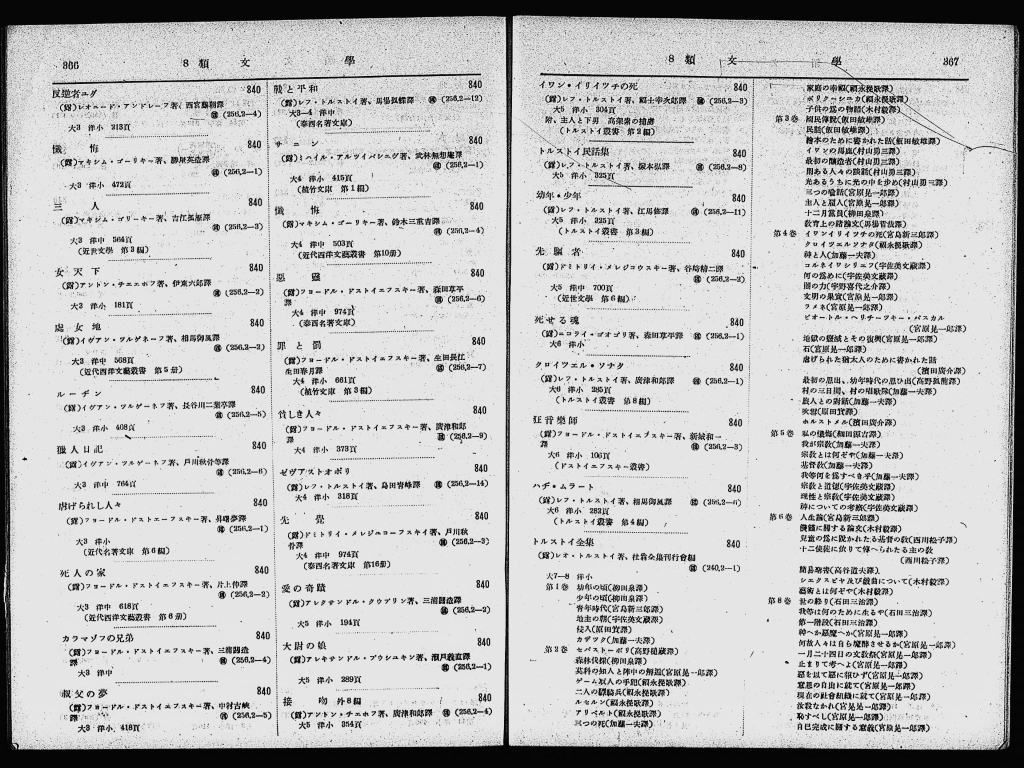 366
8類 文 學
反逆者ユダ 840
(露)レオニード・アンドレーフ著、西宮藤朝譯
(256,2—4)
大3 洋小 213頁
懺悔 840
(露)マキシム・ゴーリキー著、
(256,2—1)
大3 洋小 472頁
三人 840
(露)マキシム・ゴリーキー著、吉江孤雁譯
(256,2—3)
大3 洋中 564頁
(近世文學 第3編)
女天下 840
(露)アントン・チエエホフ著、伊東六郎譯
(256,2—2)
大3 洋小 181頁
處女地 840
(露)イヴァン・ツルゲネーフ著、相馬御風譯
(256,2—2)
大3 洋中 568頁
(近代西洋文藝叢書 第5册)
ルーヂン 840
(露)イヴァン・ツルゲーネフ著、長谷川二葉亭譯
(256,2—5)
大3 洋小 408頁
獵人日記 840
(露)イヴァン・ツルゲーネフ著、戸川秋骨等譯
(256,2—6)
大3 洋中 764頁
虐げられし人々 840
(露)フョードル・ドストエーフスキー著、昇曙夢譯
(256,2—1)
大3 洋小
(近代名著文庫 第6編)
死人の家 840
(露)フヨードル・ドストイエフスキー著、片上伸譯
(256,2—2)
大3 洋中 618頁
(近代西洋文藝叢書 第6册)
カラマゾフの兄弟 840
(露)フヨードル・ドストイエフスキー著、三浦關造
譯 (256,2—4)
大3 洋中
叔父の夢 840
(露)フヨードル・ドストイエフスキー著、中村古峽
譯 (256,2—5)
大3 洋小 418頁
戰と平和 840
(露)レフ・トルストイ著、馬場孤蝶譯 (256,2—12)
大3—4 洋中
(泰西名著文庫)
サーニン 840
(露)ミハイル・アルツイバシエヴ著、武林無想庵譯
(256,2—1)
大4 洋小 415頁
(植竹文庫 第1編)
懺悔 840
(露)マキシム・ゴーリキー著、鈴木三重吉譯
(256,2—4)
大4 洋中 503頁
(近代西洋文藝叢書 第10册)
惡靈 840
(露)フヨードル・ドストイエフスキー著、森田草平
譯 (256,2—6)
大4 洋中 974頁
(泰西名著文庫)
罪と罰 840
(露)フヨードル・ドストイエフスキー著、生田長江
生田春月譯 (256,2—7)
大4 洋小 661頁
(植竹文庫 第3編)
貧しき人々 840
(露)フヨードル・ドストイエフスキー著、廣津和郎
譯 (256,2—9)
大4 洋小 373頁
ゼヴアストオポリ 840
(露)レフ・トルストイ著、島田青峰譯 (256,2—14)
大4 洋小 318頁
先覺 840
(露)ドミトリイ・メレジユコーフスキイ著、戸川秋
骨譯 (256,2—3)
大4 洋中 974頁
(泰西名著文庫 第16册)
愛の奇蹟 840
(露)アレクサンドル・クウプリン著、三浦關造譯
(256,2—2)
大5 洋小 194頁
大尉の娘 840
(露)アレキサンドル・プウシユキン著、瀬戸義直譯
(256,2—1)
大5 洋小 289頁
接吻 外8編 840
(露)アントン・チエホフ著、廣津和郎譯 (256,2—4)
大5 洋小 354頁
8類 文 學
367
イワン・イリイツチの死 840
(露)レフ・トルストイ著、福士幸次郎譯 (256,2—3)
大5 洋小 304頁
附、主人と下男 高架索の捕虜
(トルストイ叢書 第2編)
トルストイ民話集 840
(露)レフ・トルストイ著、塚本弘譯 (256,2—8)
大5 洋小 325頁
幼年・少年 840
(露)レフ・トルストイ著、江馬修譯 (256,2—11)
大5 洋小 325頁
(トルストイ叢書 第3編)
先驅者 840
(露)ドミトリイ・メレジコウスキー著、谷崎精二譯
(256,2—2)
大5 洋中 700頁
(近世文學 第6編)
死せる魂 840
(露)ニコライ・ゴオゴリ著、森田草平譯 (256,2—1)
大6 洋小
クロイツエル・ソナタ 840
(露)レフ・トルストイ著、廣津和郎譯 (256,2—1)
大6 洋小 285頁
(トルストイ叢書 第8編)
狂音樂師 840
(露)フヨードル・ドストイエフスキー著、新城和一
譯 (256,2—3)
大6 洋小 106頁
(ドストイエフスキー叢書)
ハヂ・ムラート 840
(露)レフ・トルストイ著、相馬御風譯 (256,2—6)
大6 洋小 282頁
(トルストイ叢書 第4編)
トルストイ全集 840
(露)レオ・トルストイ著、社翁全集刊行會編
(240,2—1)
大7—8 洋小
第1巻 幼年の頃(柳田泉譯)
少年の頃(柳田泉譯)
青年時代(宮島新三郎譯)
地主の朝(宇佐美文藏譯)
侵入(原田實譯)
カザツク(加藤一夫譯)
第2巻 セバストーポリ(高野槌藏譯)
森林伐採(柳田泉譯)
莫科の知人と陣中の邂逅(宮原晃一郎譯)
ゲーム取人の手記(福永挽歌譯)
二人の驃騎兵(福永挽歌譯)
ルセルン(福永挽歌譯)
アリベルト(福永挽歌譯)
三つの死(加藤一夫譯)
家庭の幸福(福永挽歌譯)
ポリクーシユカ(福永挽歌譯)
子供の爲の物語(木村毅譯)
第3巻 國民傳說(飯田敏雄譯)
民話(飯田敏雄譯)
繪本のために書かれた話(飯田敏雄譯)
イワンの馬鹿(村山勇三譯)
最初の釀造者(村山勇三譯)
閑ある人々の談話(村山勇三譯)
光あるうちに光の中を歩め(村山勇三譯)
三つの喩話(宮原晃一郎譯)
主人と雇人(宮原晃一郎譯)
十二月黨員(柳田泉譯)
教育上の諸論文(馬場哲哉譯)
第4巻 イワンイリイツチの死(宮島新三郎譯)
クロイツエルソナタ(福永挽歌譯)
神と人(加藤一夫譯)
コルネイワシリエフ(宇佐美文藏譯)
何の爲めに(宇佐美文藏譯)
闇の力(宇野喜代之介譯)
文明の果實(宮原晃一郎譯)
ラメネ(宮原晃一郎譯)
ピオートル・ヘリチーツキー・パスカル
(宮原晃一郎譯)
地獄の毀滅とその復興(宮原晃一郎譯)
石(宮原晃一郎譯)
虐げられた猶太人のために書かれた話
(濱田廣介譯)
最初の思出、幼年時代の思ひ出(高野孤鹿譯)
村の三日間、村の唱歌隊(加藤一夫譯)
旅人との對話(加藤一夫譯)
吹雪(原田實譯)
ホルストメル(濱田廣介譯)
第5巻 私の懺悔(柳田泉譯)
我が宗教(加藤一夫譯)
宗教とは何ぞや(加藤一夫譯)
基督教(加藤一夫譯)
我等何を爲すべき乎(加藤一夫譯)
宗教と道德(宇佐美文藏譯)
理性と宗教(宇佐美文藏譯)
神についての考察(宇佐美文藏譯)
第6巻 人生論(宮島新三郎譯)
饑饉に關する論文(木村毅譯)
兒童の爲に說かれたる基督の敎(西川松子譯)
十二使徒に依りて傳へられたる主の敎
(西川松子譯)
簡易聖書(高谷道夫譯)
シエクスピヤ及び戲曲について(木村毅譯)
藝術とは何ぞや(木村毅譯)
第8巻 世の終り(石田三治譯)
我等は何のために生るや(石田三治譯)
第一階段(石田三治譯)
神へか惡魔へか(宮原晃一郎譯)
何故人々は自ら魔醉させるか(宮原晃一郎譯)
一月二十四日の文敎祭(宮原晃一郎譯)
止まりて考へよ(宮原晃一郎譯)
惡を以て惡に報ひず(宮原晃一郎譯)
意思の自由に就て(宮原晃一郎譯)
現在の社會組織に就て(宮原晃一郎譯)
汝殺すなかれ(宮原晃一郎譯)
恥すべし(宮原晃一郎譯)
自己完成に關する意義(宮原晃一郎譯)